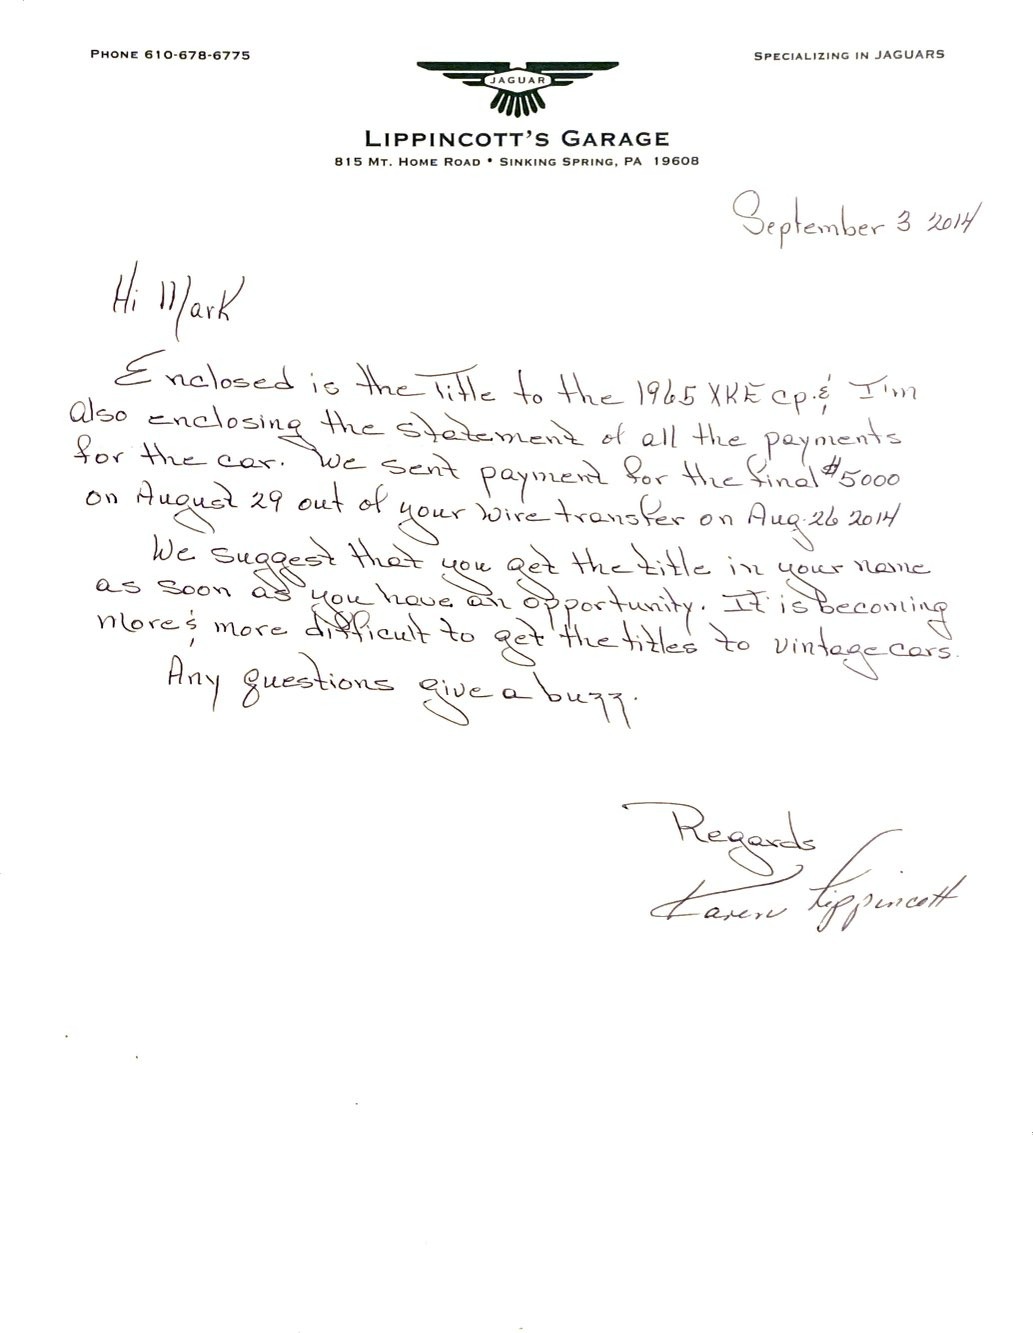 PHONE 610-678-6775
SPECIALIZING IN JAGUARS
JAGUAR
LIPPINCOTT'S GARAGE
815 MT. HOME ROAD • SINKING SPRING, PA 19608
September 3 2014
Hi Mark
Enclosed is the Title to the 1965 XKE cp. & I'm
also enclosing the statement of all the payments
for the car. We sent payment for the final $5000
on August 29 out of your wire transfer on Aug. 26 2014
We suggest that you get the title in your name
as soon as you have an opportunity. It is becoming
more & more difficult to get the titles to vintage cars.
Any questions give a buzz.
Regards
Karen Lippincott